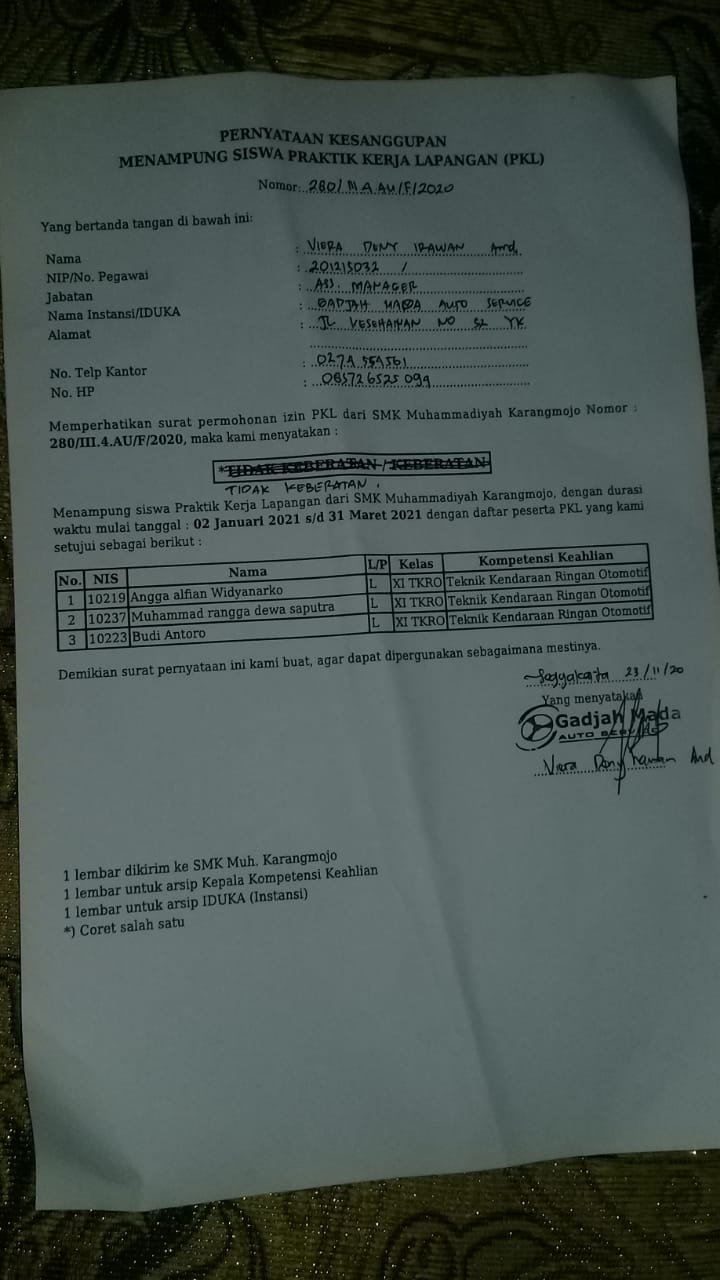 PERNYATAAN KESANGGUPAN
MENAMPUNG SISWA PRAKTIK KERJA LAPANGAN (PKL)
Nomor: 280/ M A. AU/F/2020
Yang bertanda tangan di bawah ini:
Nama : VIERA DENY IRAWAN Amd.
NIP/No. Pegawai : 201215032 /
Jabatan : ASS. MANAGER
Nama Instansi/IDUKA : GADJAH MADA AUTO SERVICE
Alamat : JL KESEHATAN NO YK
No. Telp Kantor : 0274 554561
No. HP : 085726525099
Memperhatikan surat permohonan izin PKL dari SMK Muhammadiyah Karangmojo Nomor :
280/III.4.AU/F/2020, maka kami menyatakan :
*TIDAK KEBERATAN / KEBERATAN
TIDAK KEBERATAN.
Menampung siswa Praktik Kerja Lapangan dari SMK Muhammadiyah Karangmojo, dengan durasi
waktu mulai tanggal : 02 Januari 2021 s/d 31 Maret 2021 dengan daftar peserta PKL yang kami
setujui sebagai berikut :
No. NIS Nama L/P Kelas Kompetensi Keahlian
1 10219 Angga alfian Widyanarko L XI TKRO Teknik Kendaraan Ringan Otomotif
2 10237 Muhammad rangga dewa saputra L XI TKRO Teknik Kendaraan Ringan Otomotif
3 10223 Budi Antoro L XI TKRO Teknik Kendaraan Ringan Otomotif
Demikian surat pernyataan ini kami buat, agar dapat dipergunakan sebagaimana mestinya.
Jogyakarta 23/11/20
Yang menyatakan
Gadjah Mada
AUTO SERVICE
Viera Deny Irawan Amd
1 lembar dikirim ke SMK Muh. Karangmojo
1 lembar untuk arsip Kepala Kompetensi Keahlian
1 lembar untuk arsip IDUKA (Instansi)
*) Coret salah satu